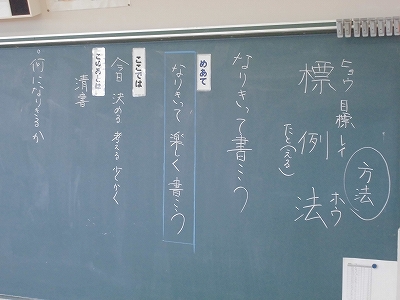 標 例 法
ヒョウ 目標 レイ たと(える) ホウ
方法
なりきって書こう
めあて
なりきって楽しく書こう
ここでは
今日 決める 考える 少しかく
清書
何になりきるか